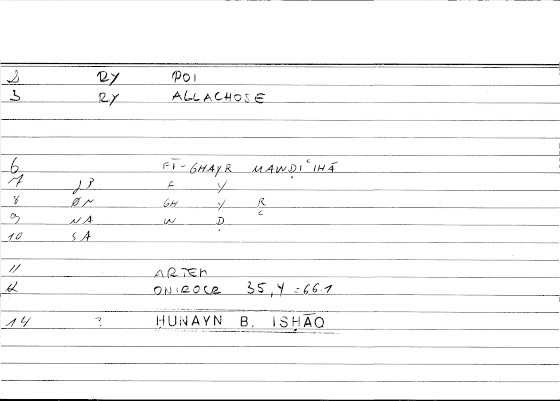 2 RY POI
3 RY ALLACHOSE
6 FĪ-GHAYR MAWḌIʿIHĀ
7 JP F Y
8 ØN GH Y R
9 NA W Ḍ C
10 SA
11 ARTEM
12 ONIROCR 35,4 = 66.1
14 ? ḤUNAYN B. ISḤĀQ